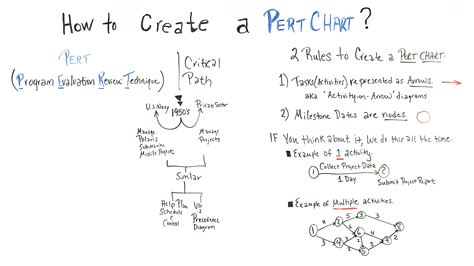 How to Create a PERT CHART?
PERT
(Program Evaluation Review Technique)
Critical
Path
U.S. Navy
1950's
Private Sector
Manage
Polaris
Submarine
Missile Project
Manage
Projects
Similar
Help Plan
Schedule
& Control
Precedence
Diagram
2 Rules to Create a PERT CHART.
1) Tasks (Activities) represented as Arrows.
aka "Activity-on-Arrow" diagrams
2) Milestone Dates are nodes.
IF You think about it, We do this all the time.
Example of 1 activity.
Collect Project Data
1
2
1 Day
Submit Project Report
Example of Multiple activities.